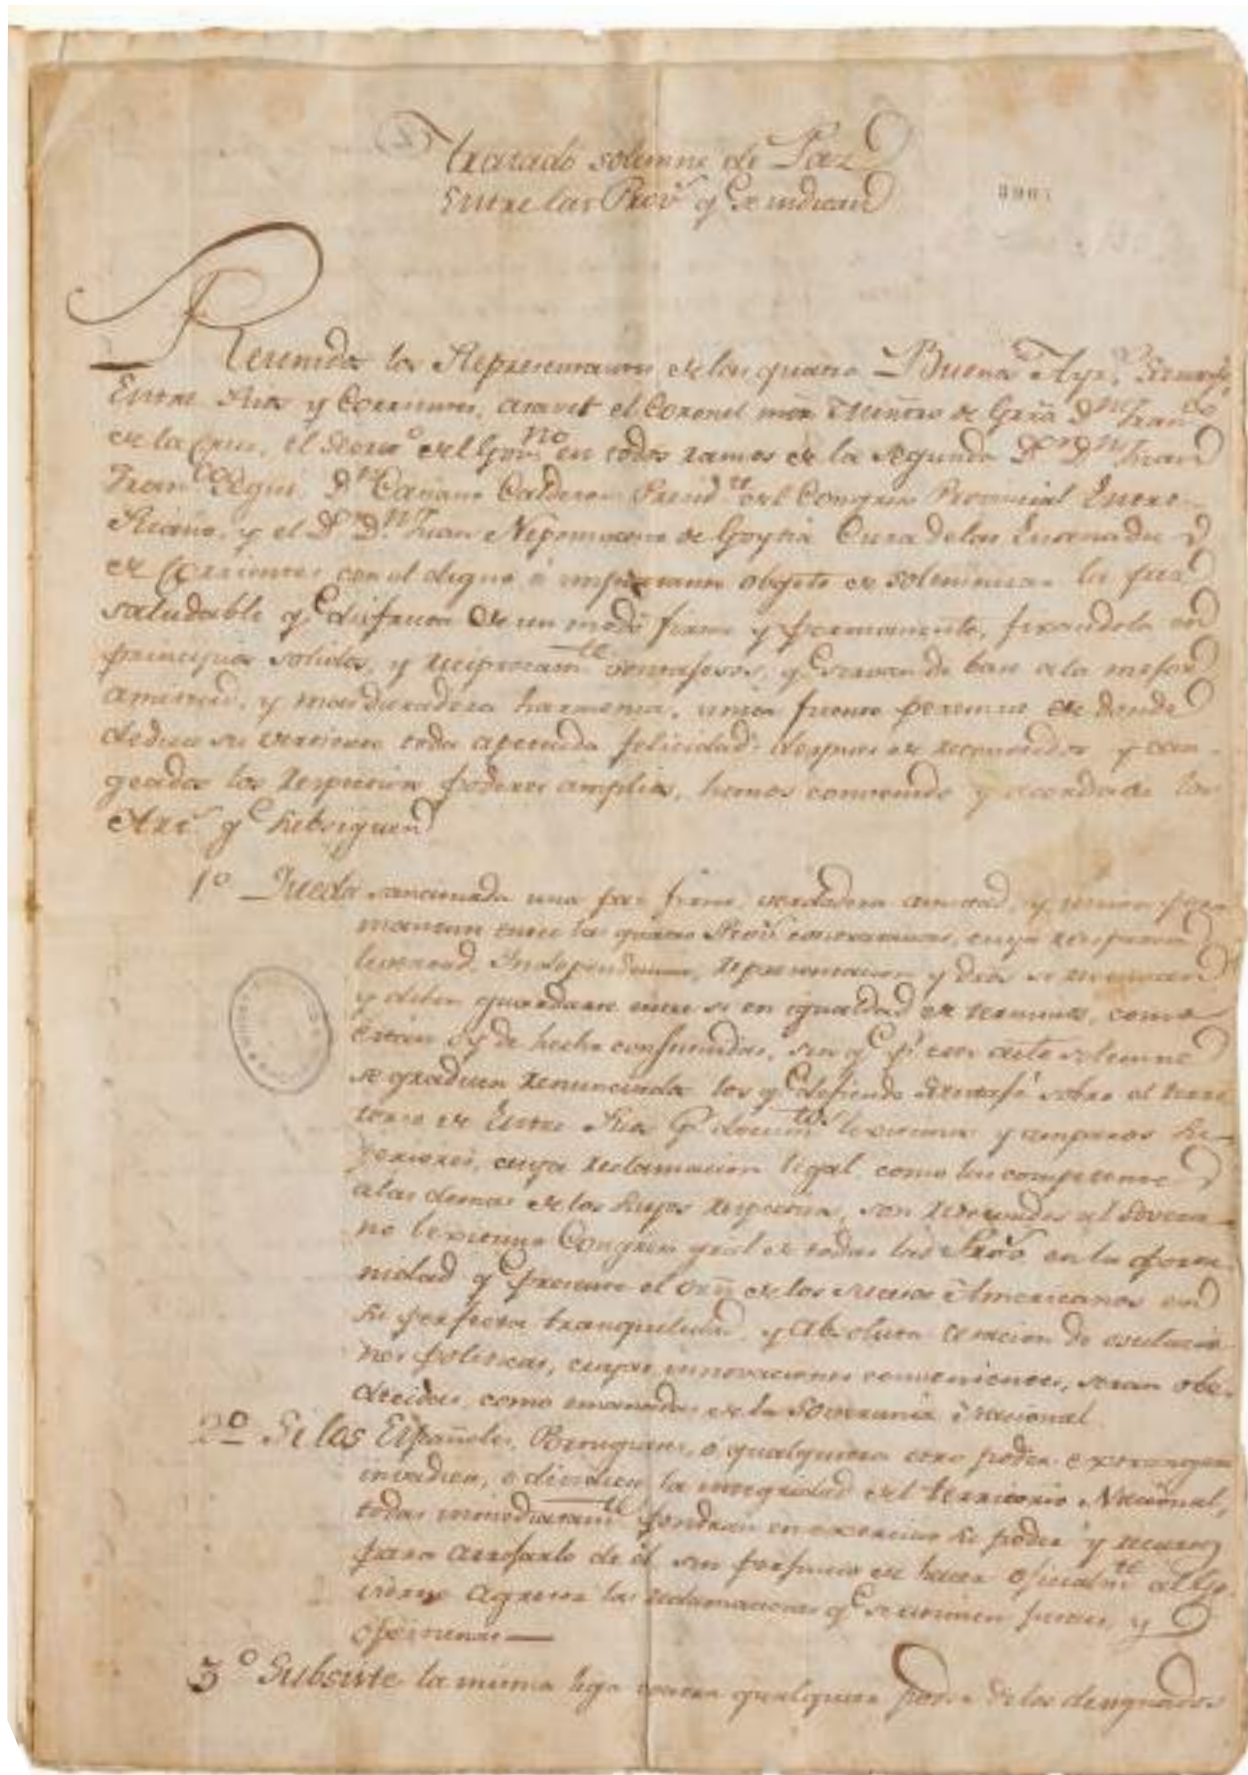 Tratado solemne de Paz
Entre las Prov.s q.e se indican
Reunidos los Representantes de las quatro Buenos Ayr.s, Santafé
Entre Rios y Corrientes, a saver el Coronel mõr Miñtro de Grrã D.n Fran.co
de la Cruz, el Secret.o del Gov.no en todos ramos de la segunda D.r D.n Juan
Fran.co Segui, D.n Casiano Calderon Presid.te del Congreso Provincial Entre-
Riano, y el D.r D.n Juan Nepomuceno de Goytia Cura de las Ensenadas
de Corrientes con el digno é importante objeto de solemnizar la paz
saludable q.e disfrutan de un modo firme y permanente, fixandola en
principios solidos, y reciprocam.te ventajosos, q.e sirvan de base a la mejor
amistad, y mas duradera harmonia, unica fuente perenne de donde
deduce su vertiente toda apetecida felicidad: despues de reconocidos y can-
geados los respectivos poderes amplios, hemos convenido y acordado los
Art.s q.e subsiguen
1º Queda sancionada una paz firme, verdadera amistad, y union per-
manente entre las quatro Prov.s contratantes, cuya reciproca
livertad, Independencia, representacion y dros se reconocen
y deben guardarse entre si en igualdad de terminos, como
están oy de hecho constituidas, sin q.e p.r este acto solemne
se graduen renunciados los q.e defiende Santafé sobre el terri
torio de Entre Rios p.r docum.tos lexitimos y amparos su-
periores, cuya reclamacion legal, como las competentes
a las demas de los suyos respectivos, son reservados al Sovera-
no lexitimo Congreso gral de todas las Prov.s en la oportu-
nidad q.e presente el orñ de los sucesos Americanos en
su perfecta tranquilidad, y absoluta cesacion de oscilacio-
nes politicas, cuyas innovaciones convenientes, seran obe-
decidas, como emanadas de la Soverania Nacional.
2º Si los Españoles, Portugueses, ó qualquiera otro poder extrangero
invadiese, o dividiese la integridad del territorio Nacional,
todas inmediatam.te pondran en exercicio su poder y recursos
para arrojarlo de él sin perjuicio de hacer oficialm.te al Go-
vierno agresor las reclamaciones q.e se estimen justas, y
oportunas —
3º Subsiste la misma liga contra qualquiera poder de los designados